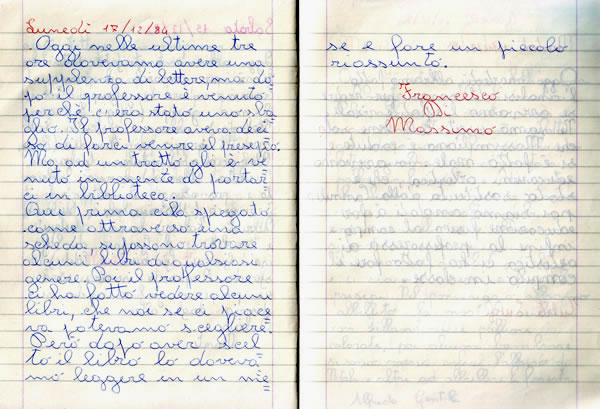 Lunedì 17/12/84
Oggi nelle ultime tre
ore dovevamo avere una
supplenza di lettere, ma do=
po il professore è venuto
perchè c'era stato uno sba
glio. Il professore aveva deci
so di farci venire il presepio.
Ma, ad un tratto gli è ve=
nuto in mente di portar
ci in biblioteca.
Qui prima ci ha spiegato
come attraverso una
scheda si possono trovare
alcuni libri di qualsiasi
genere. Poi il professore
ci ha fatto vedere alcuni
libri, che noi se ci piace
va potevamo scegliere.
Però dopo aver scel=
to il libro lo doveva=
mo leggere in un me=
se e fare un piccolo
riassunto.
Francesco
Di
Massimo